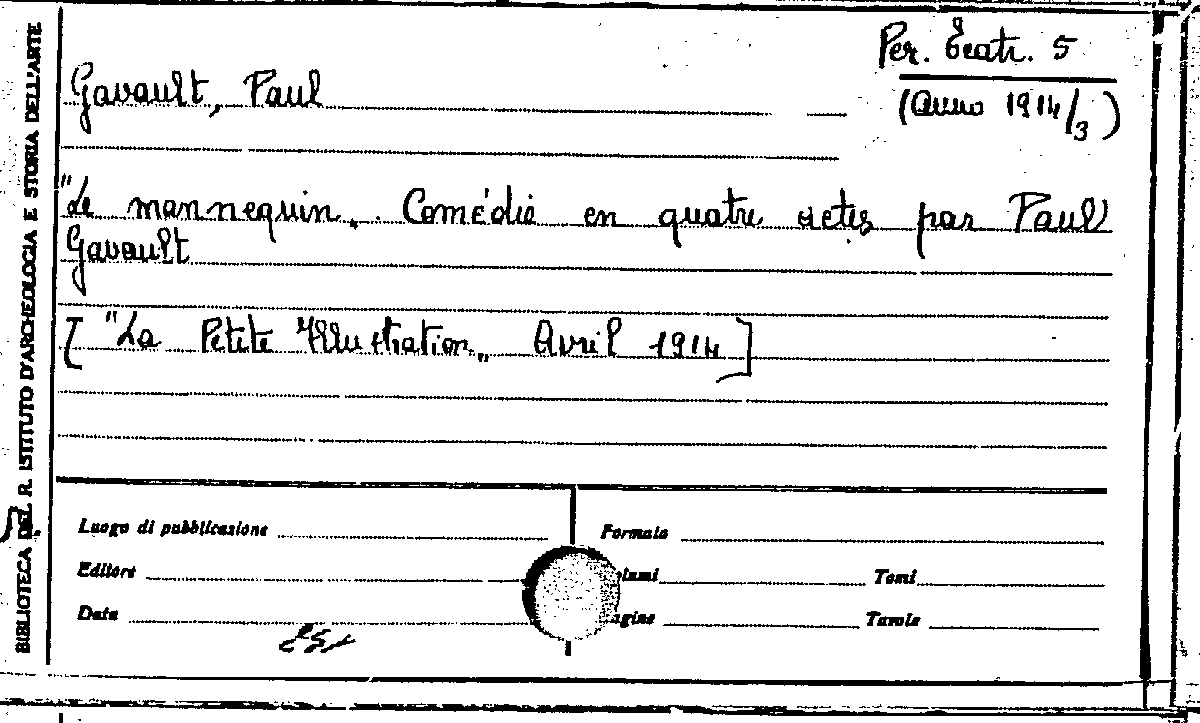 Per. Teatr. 5
(Anno 1914/3)
Gavault, Paul
"Le mannequin„. Comédie en quatre actes par Paul
Gavault
["La Petite Illustration„ Avril 1914]
BIBLIOTECA DEL R. ISTITUTO D'ARCHEOLOGIA E STORIA DELL'ARTE
Luogo di pubblicazione
Formato
Editore
Tomi
Data
Tavole